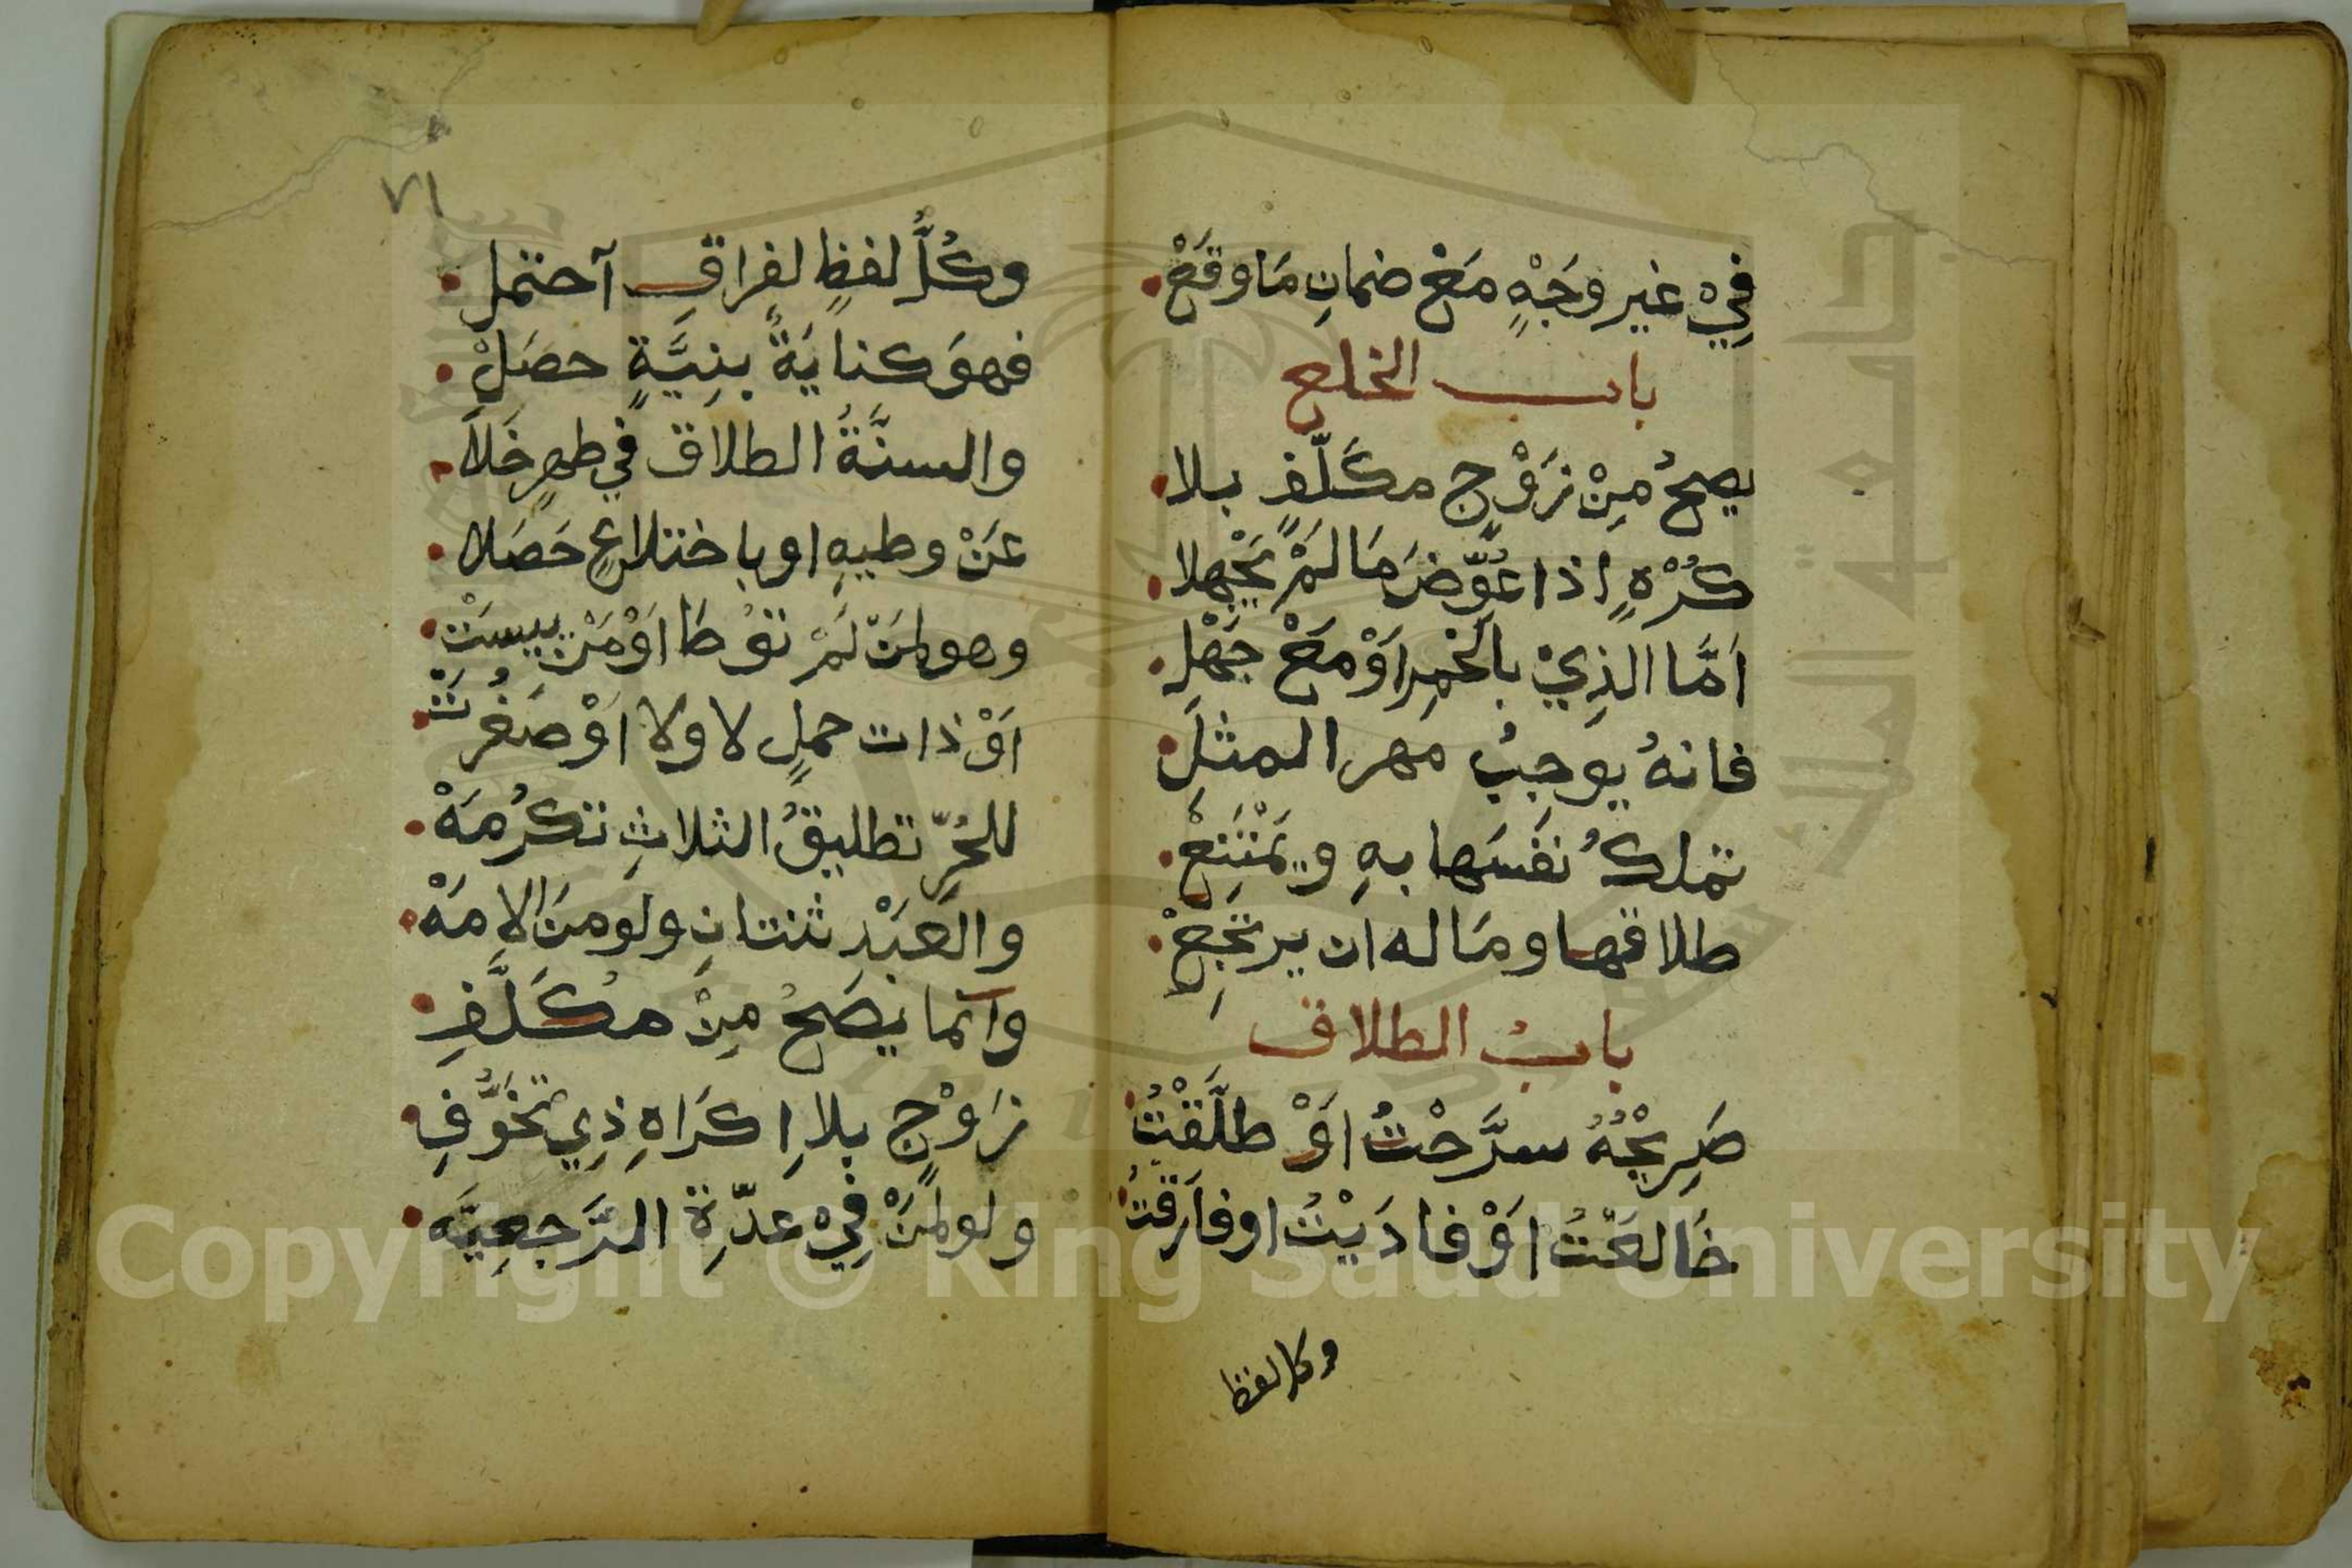 فِيْ غير وَجْهٍ مَعْ ضمانِ مَا وقَعْ
باب الخلع
يصحُ مِنْ زَوْجٍ مكَلّفٍ بلا
كُرْهٍ اذا عُوّضَ مَا لَمْ يَجْهلا
اَمَّا الذِيْ بالخمرِ اَوْ معْ جَهْلِ
فانهُ يوجبُ مهر المثلِ
تملكُ نفَسَها بهِ ويَمْتَنِعْ
طلاقها ومَا له ان يرتجِعْ
بابُ الطلاق
صَرِيْحُهُ سرَّحْتُ اَوْ طلَّقْتُ
خَالعْتُ اَوْ فادَيْتُ او فارَقتُ
وكل لفظ
٧١
وكُلُّ لفظٍ لفِراقٍ آحتمل
فهوَ كنايَةٌ بنِيَّةٍ حصَلْ
والسنَّةُ الطلاق في طهرٍ خَلَا
عَنْ وطيهِ او باختلاعٍ حَصَلا
وهو لمَنْ لَمْ توْطَا اَوْ مَنْ ييسَتْ
اَوْ ذات حملٍ لا ولا اَوْ صَغُرتْ
للحُرِّ تطليقُ الثلاثِ تكرُمَهْ
والعَبْدِ ثنتانِ ولو منَ الامَهْ
وآنما يَصَحُ مِنْ مُكَلَّفِ
زَوْجٍ بلا اِكَراهِ ذِي تَخَوُّفِ
ولو لمَنْ فِيْ عدّةِ الرَّجعِيَّه
Copyright © King Saud University